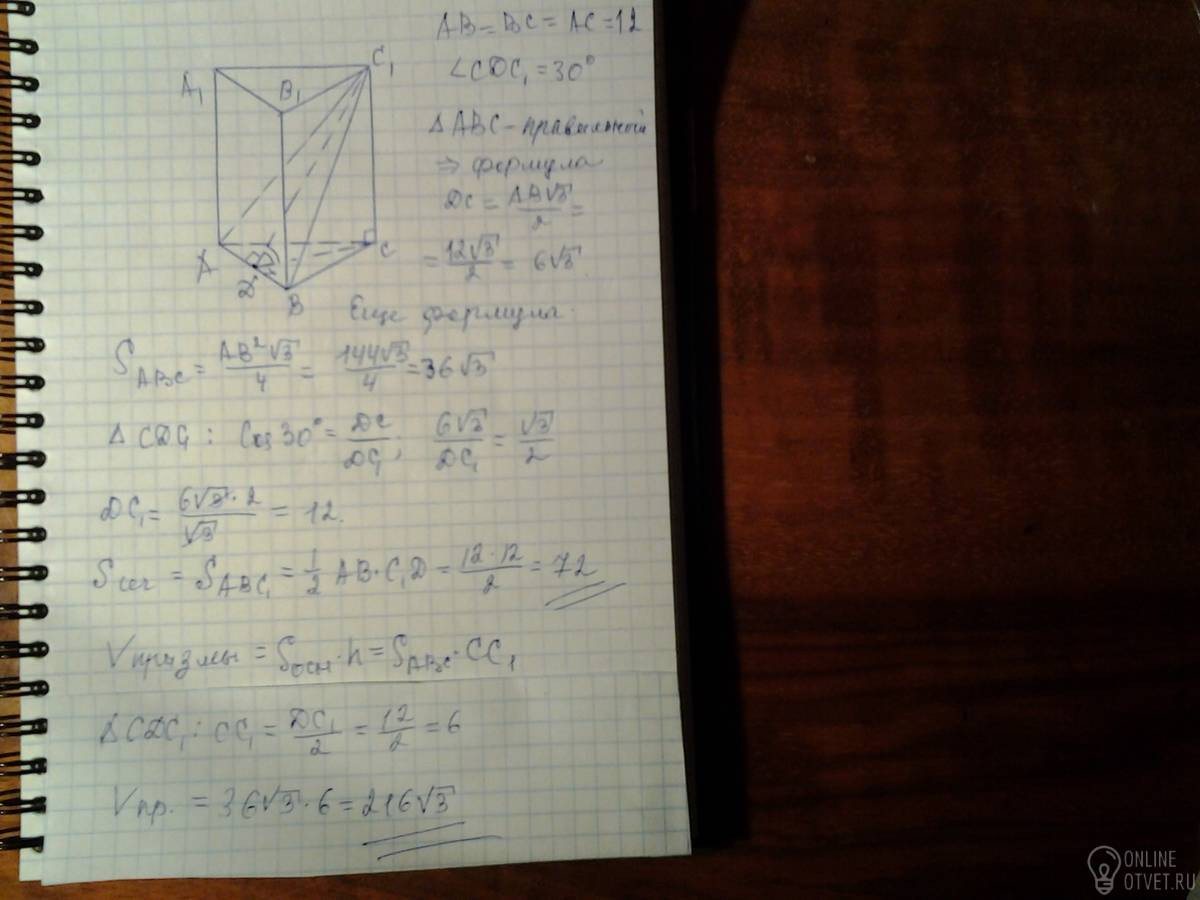 AB = BC = AC = 12
∠CDC₁ = 30°
A₁
B₁
C₁
Δ ABC - правильный
⇒ формула
DC = AB√3/2 =
= 12√3/2 = 6√3.
A
D
B
C
Еще формула:
S_ABC = AB²√3/4 = 144√3/4 = 36√3
Δ CDC₁ : Cos 30° = DC/DC₁; 6√3/DC₁ = √3/2
DC₁ = 6√3 · 2/√3 = 12.
Sсеч = S_ABC₁ = 1/2 AB · C₁D = 12 · 12/2 = 72
Vпризмы = Sосн · h = S_ABC · CC₁
Δ CDC₁ : CC₁ = DC₁/2 = 12/2 = 6
Vпр. = 36√3 · 6 = 216√3
ONLINE
OTVET.RU